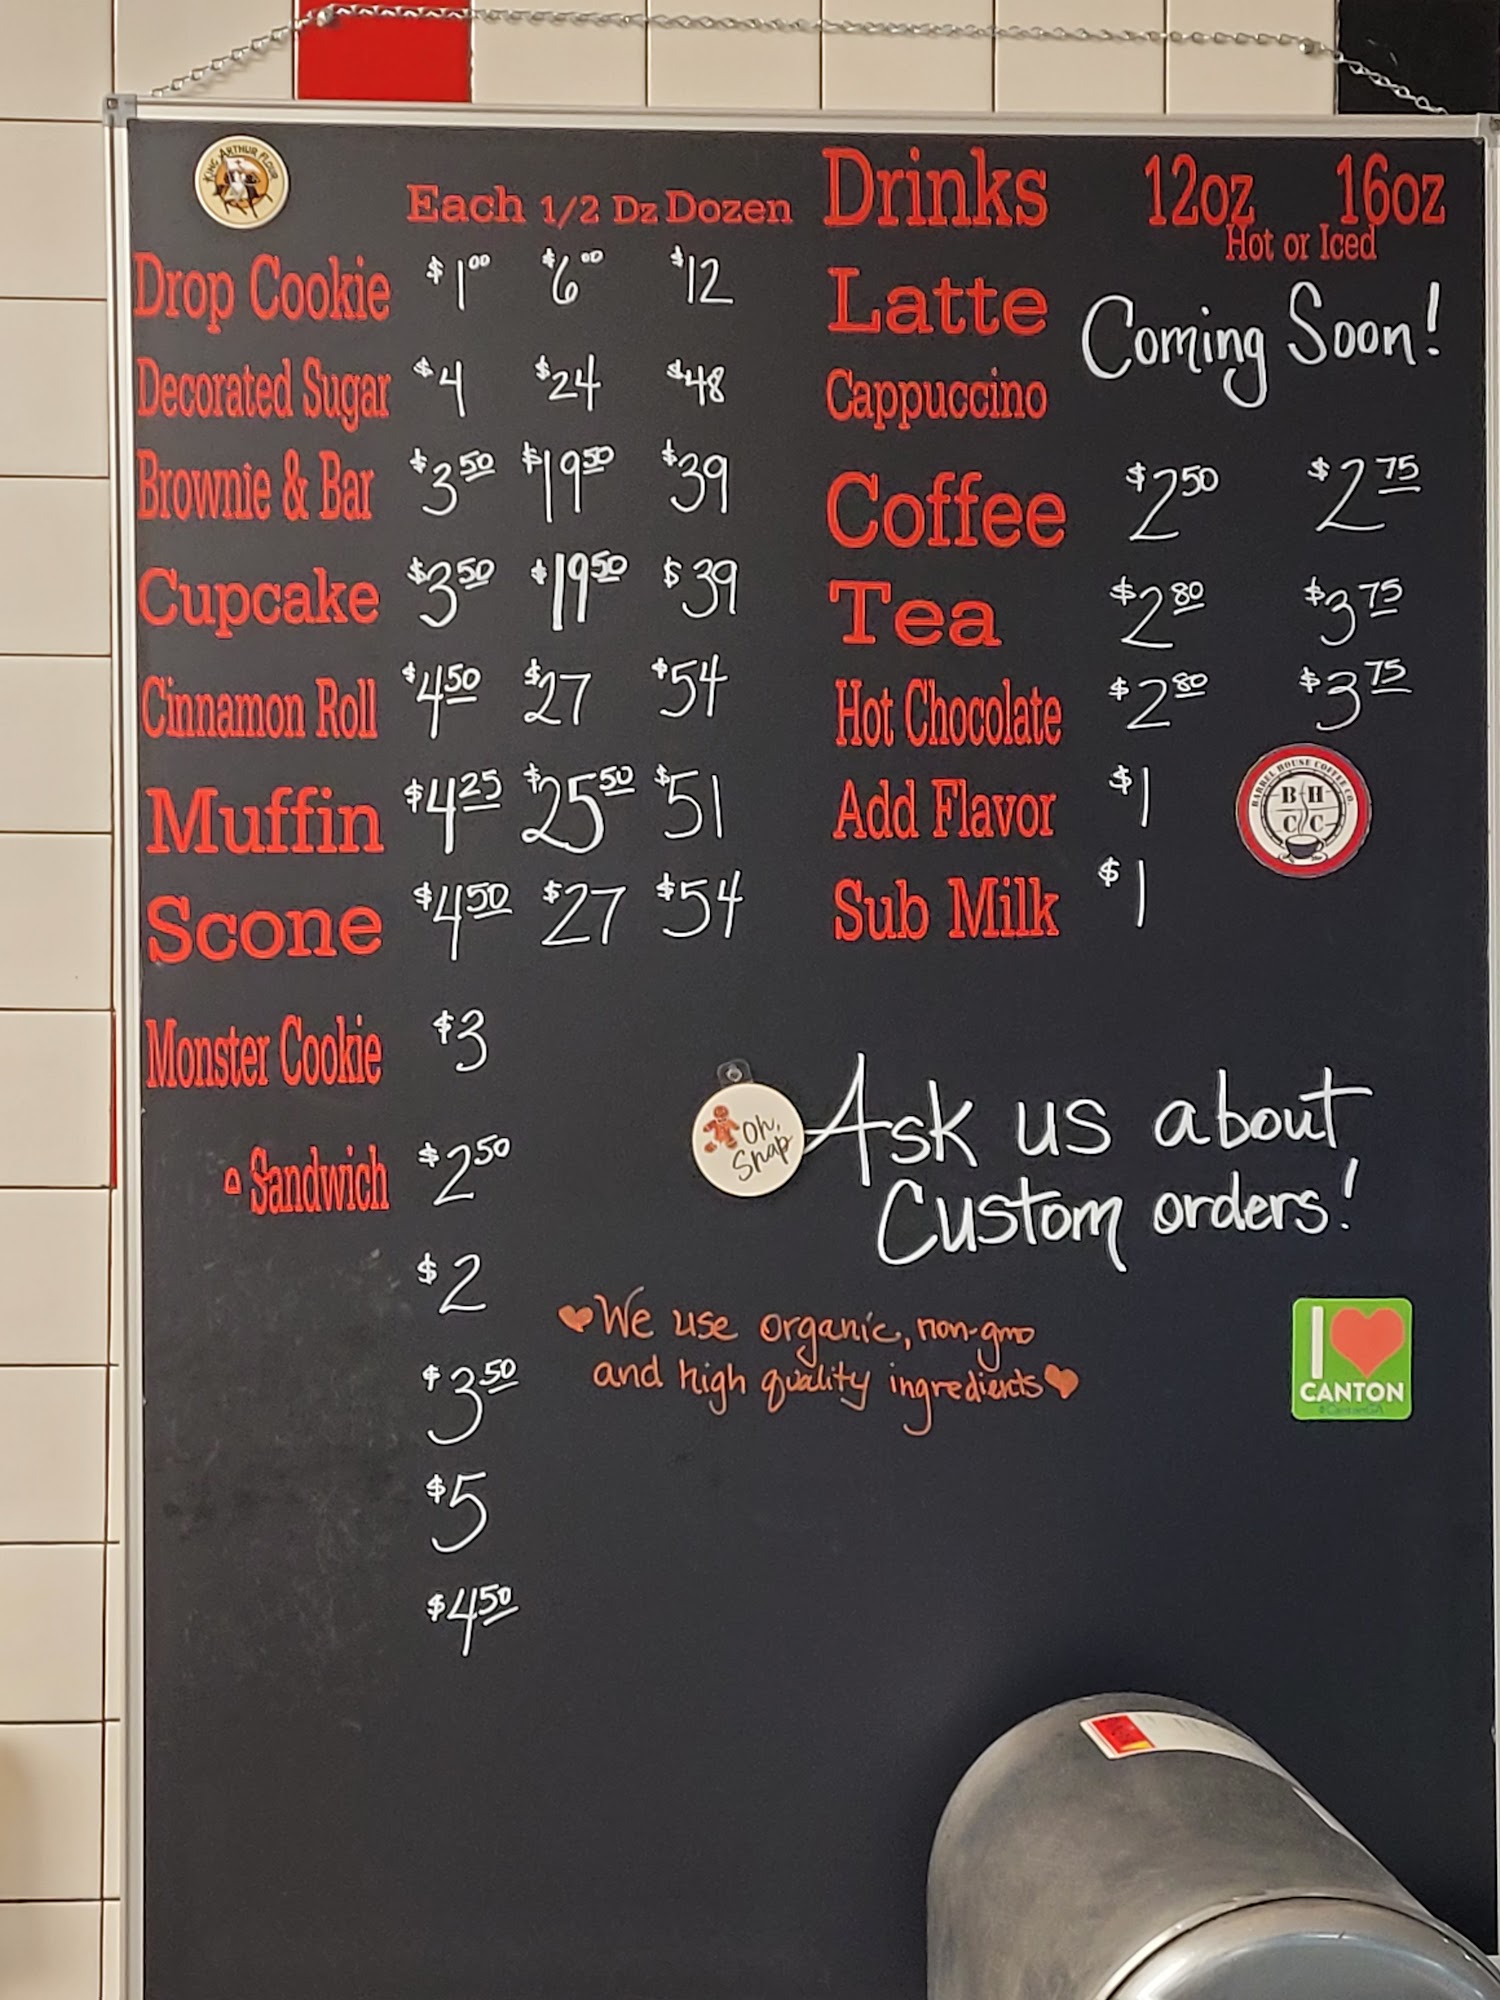 KING ARTHUR FLOUR
Each 1/2 Dz Dozen
Drop Cookie $1.00 $6.00 $12
Decorated Sugar $4 $24 $48
Brownie & Bar $3.50 $19.50 $39
Cupcake $3.50 $19.50 $39
Cinnamon Roll $4.50 $27 $54
Muffin $4.25 $25.50 $51
Scone $4.50 $27 $54
Monster Cookie $3
Sandwich $2.50
$2
$3.50
$5
$4.50
Drinks 12oz 16oz
Hot or Iced
Latte
Coming Soon!
Cappuccino
Coffee $2.50 $2.75
Tea $2.80 $3.75
Hot Chocolate $2.80 $3.75
Add Flavor $1
Sub Milk $1
BARREL HOUSE COFFEE CO.
B H
C C
Oh,
Snap
Ask us about
Custom orders!
We use organic, non-gmo
and high quality ingredients
I
CANTON
#CantonGA